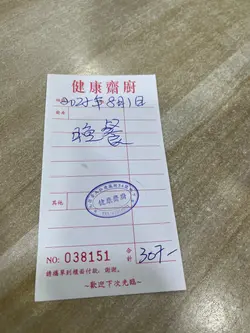 健康齋廚
年8月1日
晚餐
品名
健康齋廚
NO: 038151
合計
307-
請攜單到櫃台付款，謝謝。
~歡迎下次光臨~